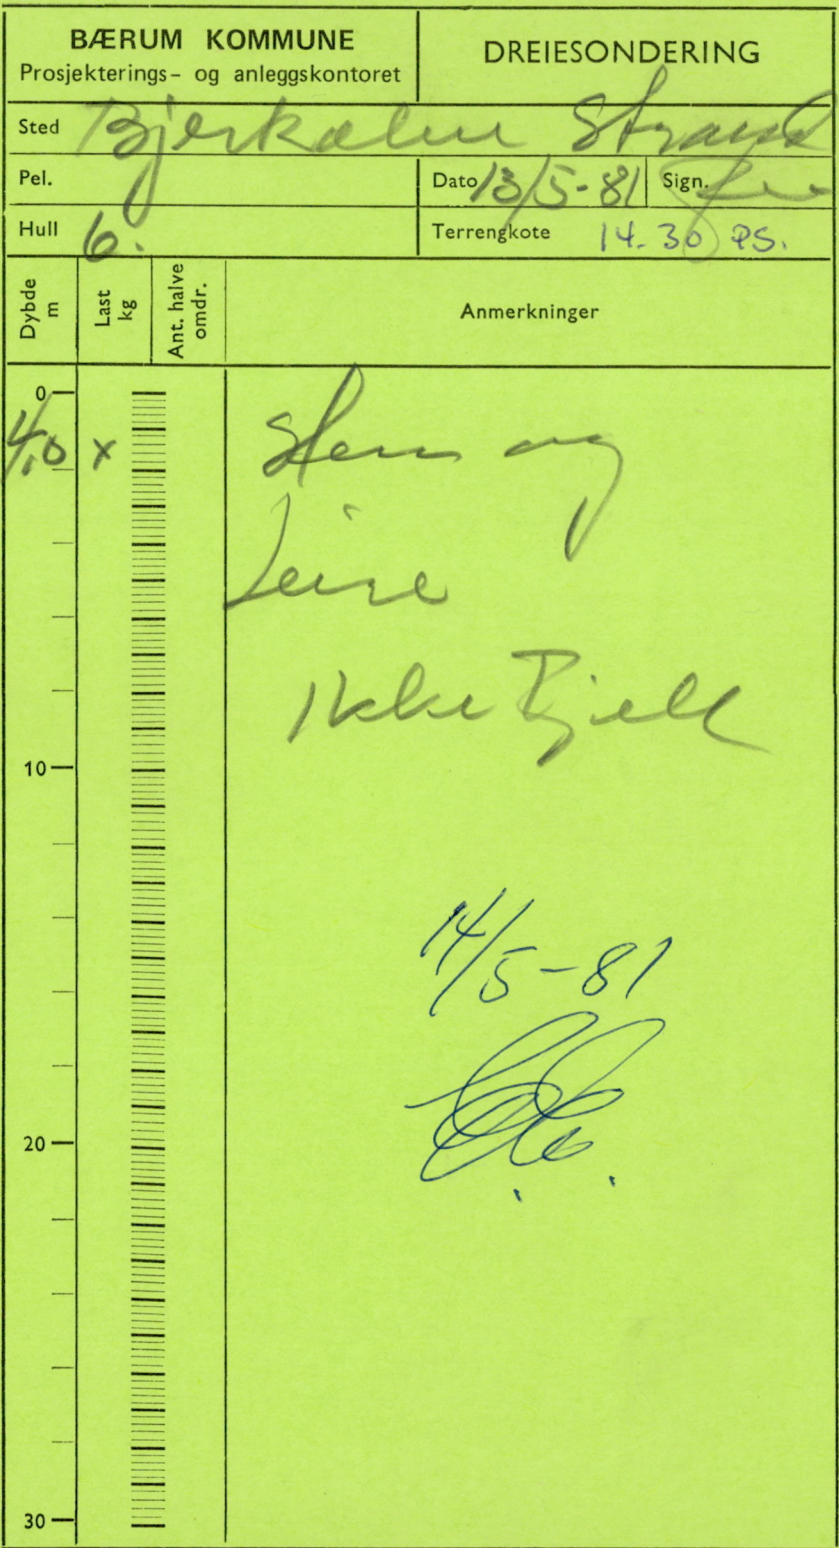 BÆRUM KOMMUNE
Prosjekterings- og anleggskontoret
DREIESONDERING
Sted Bjerkælva Strand
Pel.
Dato 13/5-81 Sign.
Hull 6.
Terrengkote 14.30 PS.
Dybde m
Last kg
Ant. halve omdr.
Anmerkninger
0
4,0 x Sten og
Leire
Ikke Fjell
10
14/5-81
20
30